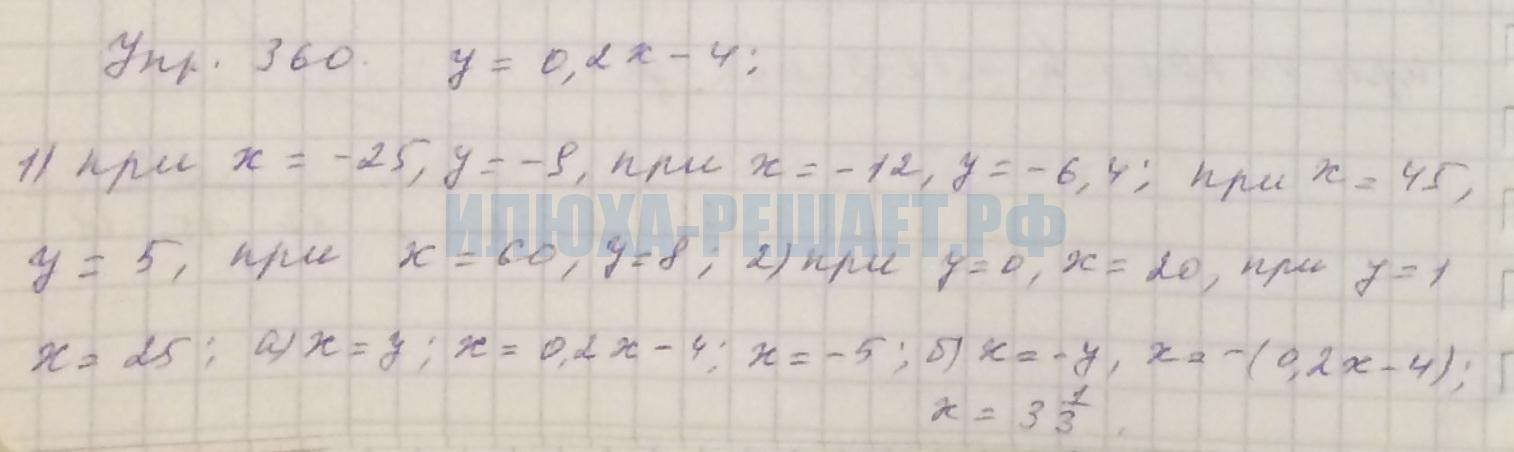 Упр. 360. y = 0,2x - 4;
1) при x = -25, y = -9, при x = -12, y = -6,4; при x = 45,
ИЛЮХА-РЕШАЕТ.РФ
y = 5, при x = 60, y = 8; 2) при y = 0, x = 20, при y = 1
x = 25; а) x = y; x = 0,2x - 4; x = -5; б) x = -y, x = -(0,2x - 4);
x = 3 1/3.